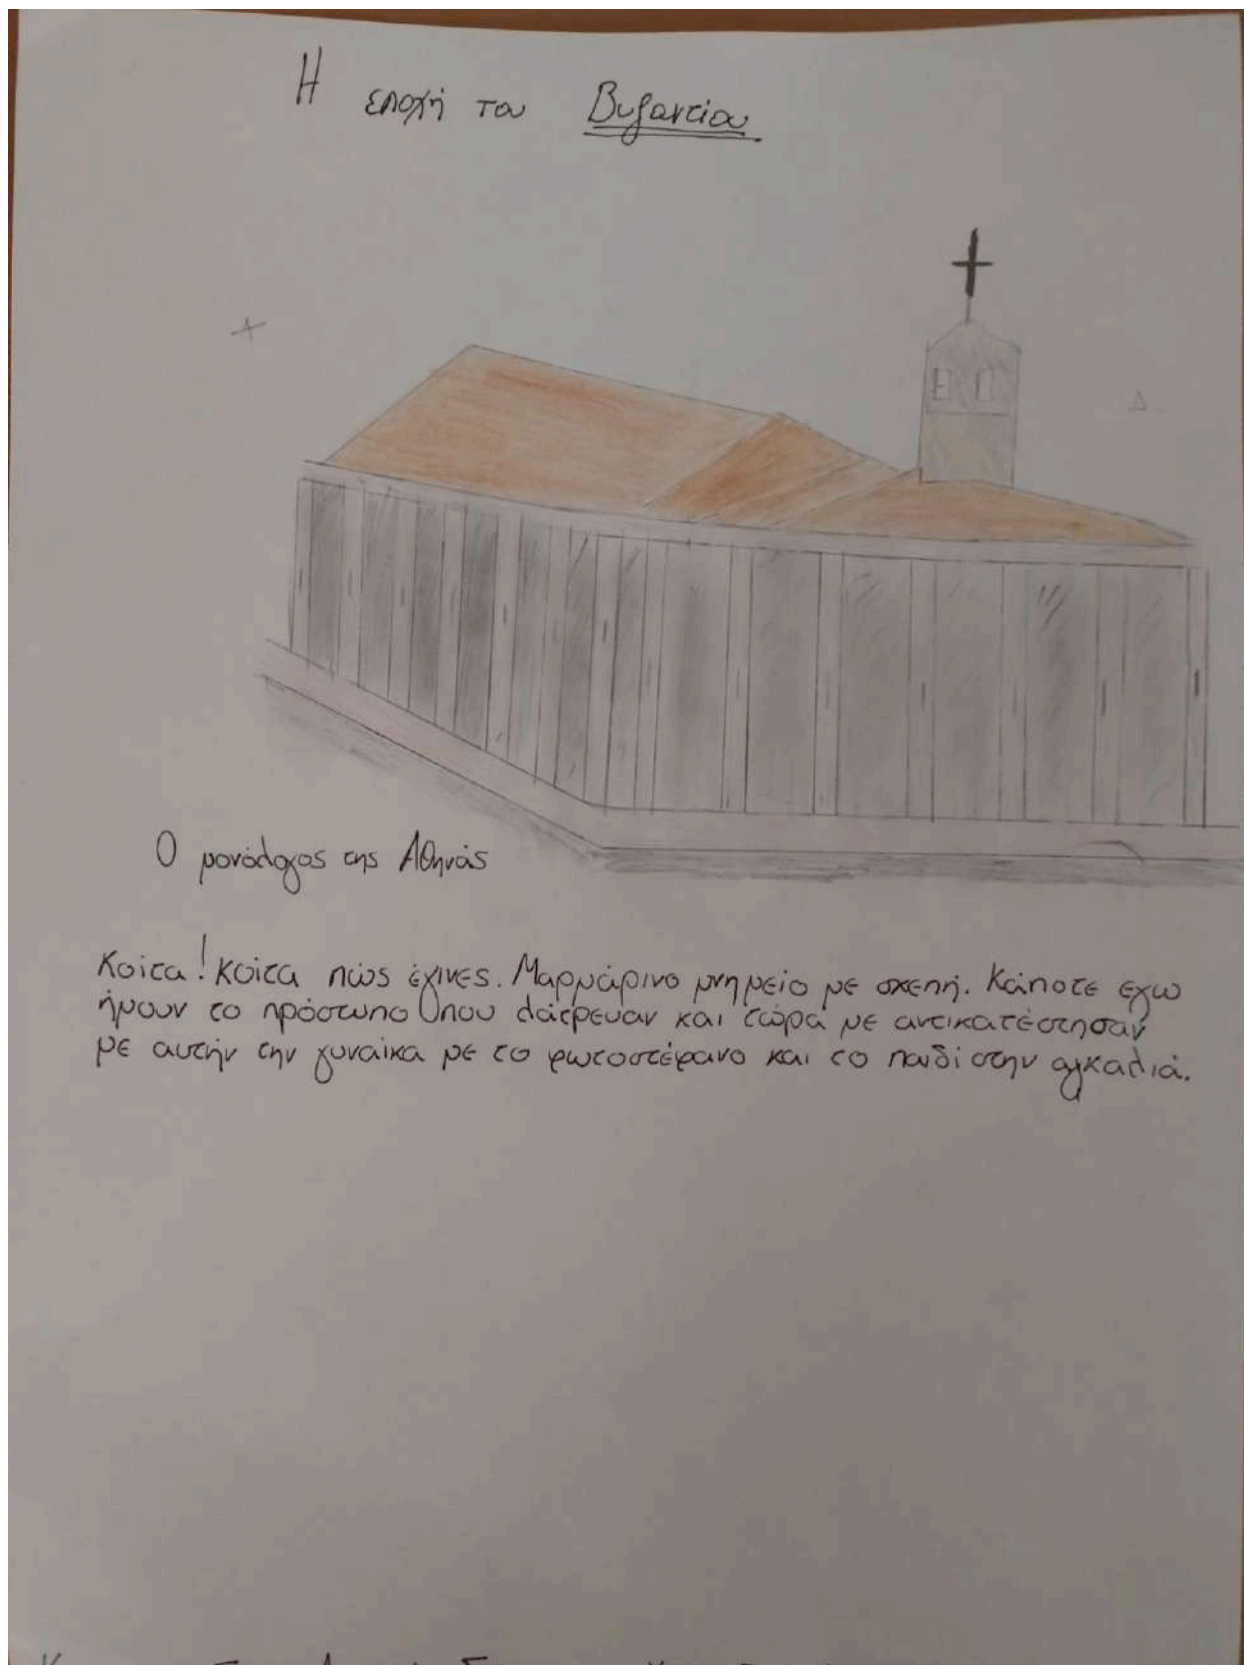 Η εποχή του Βυζαντίου
Ο μονόλογος της Αθηνάς
Κοίτα! κοίτα πώς έγινες. Μαρμάρινο μνημείο με σκεπή. Κάποτε εγω
ήμουν το πρόσωπο που λάτρευαν και τώρα με αντικατέστησαν
με αυτήν την γυναίκα με το φωτοστέφανο και το παιδί στην αγκαλιά.